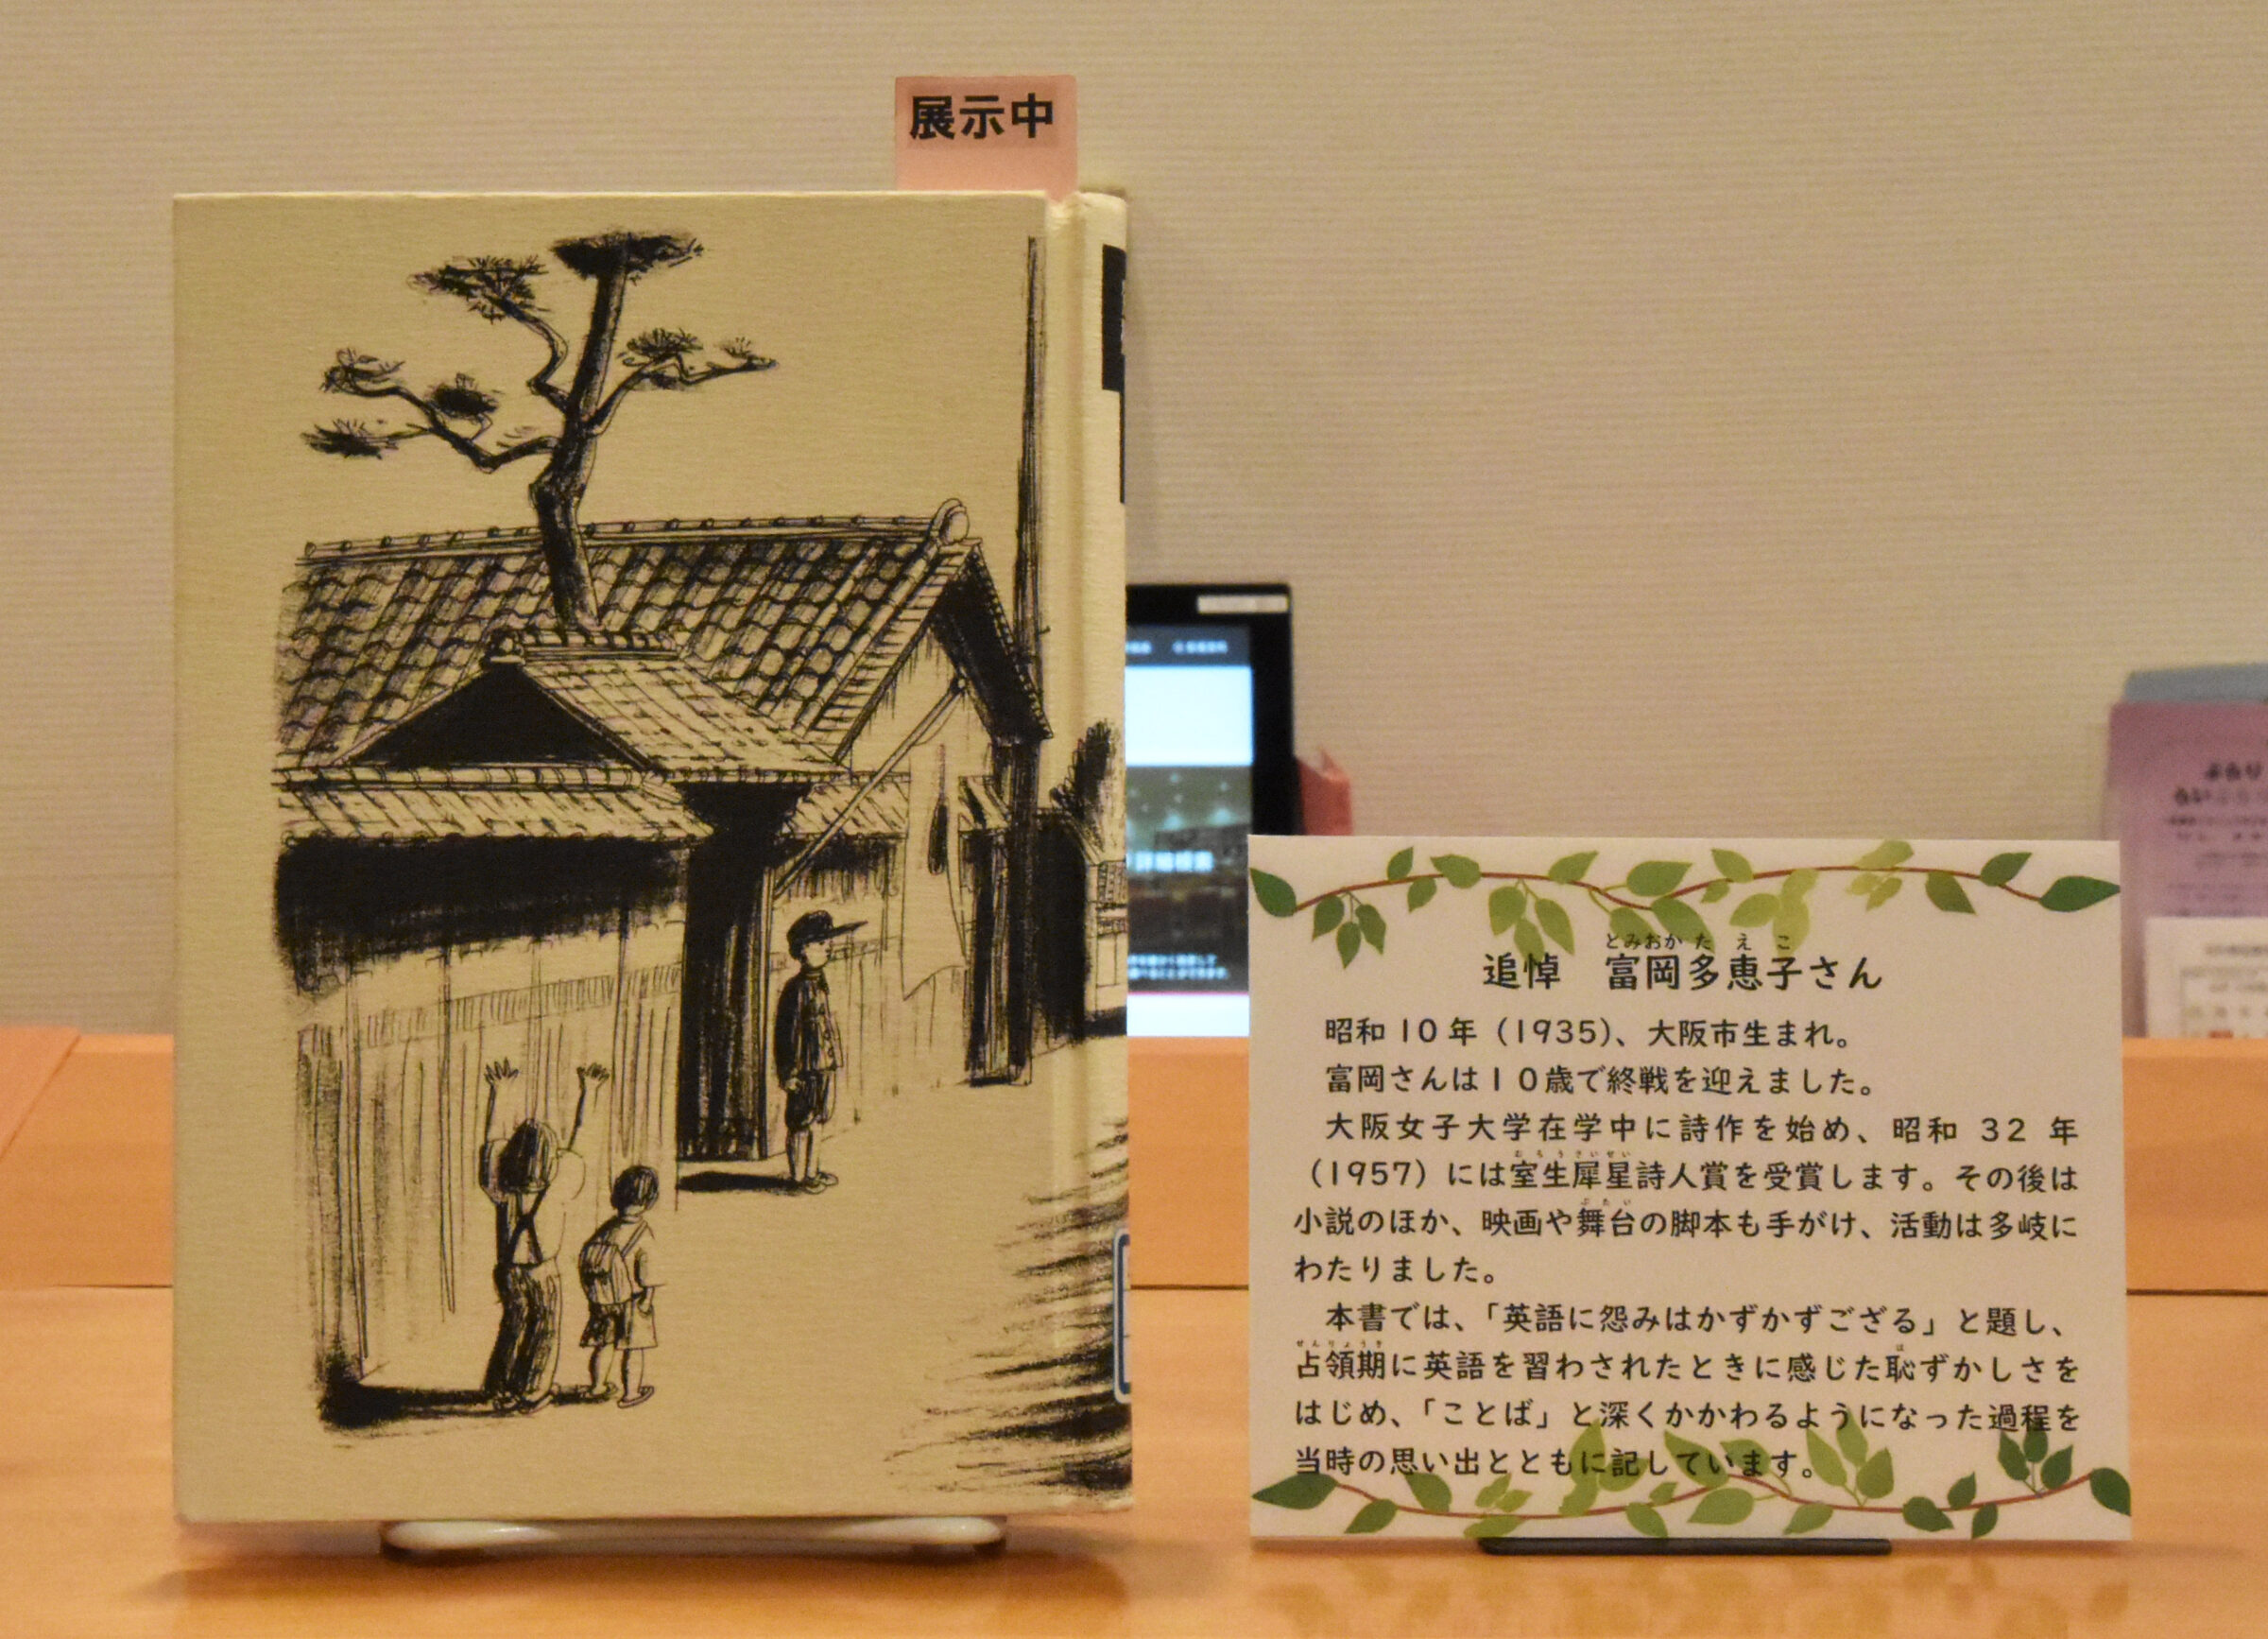 展示中
追悼　富岡多恵子さん
昭和10年（1935）、大阪市生まれ。
富岡さんは10歳で終戦を迎えました。
大阪女子大学在学中に詩作を始め、昭和 32 年
（1957）には室生犀星詩人賞を受賞します。その後は
小説のほか、映画や舞台の脚本も手がけ、活動は多岐に
わたりました。
本書では、「英語に怨みはかずかずござる」と題し、
占領期に英語を習わされたときに感じた恥ずかしさを
はじめ、「ことば」と深くかかわるようになった過程を
当時の思い出とともに記しています。